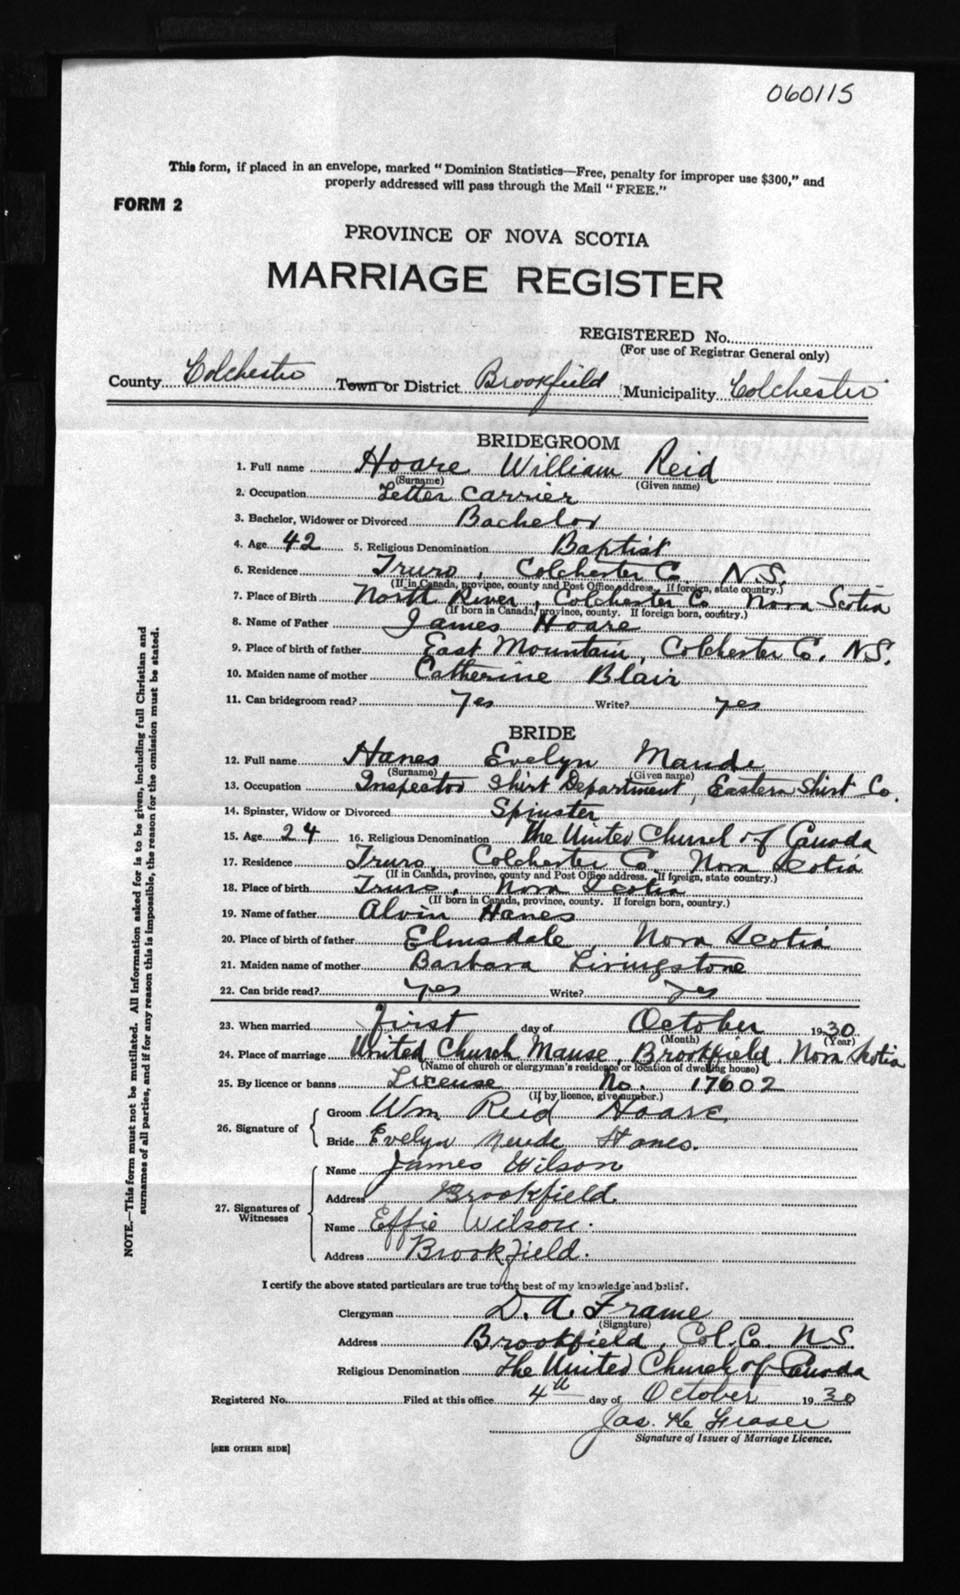 060115
This form, if placed in an envelope, marked "Dominion Statistics—Free, penalty for improper use $300," and
properly addressed will pass through the Mail "FREE."
FORM 2
PROVINCE OF NOVA SCOTIA
MARRIAGE REGISTER
REGISTERED No.
(For use of Registrar General only)
County Colchester Town or District Brookfield Municipality Colchester
BRIDEGROOM
1. Full name Hoare William Reid
(Surname) (Given name)
2. Occupation Letter Carrier
3. Bachelor, Widower or Divorced Bachelor
4. Age 42 5. Religious Denomination Baptist
6. Residence Truro, Colchester Co. N.S.
(If in Canada, province, county and Post Office address. If foreign, state country.)
7. Place of Birth North River, Colchester Co Nova Scotia
(If born in Canada, province, county. If foreign born, country.)
8. Name of Father James Hoare
9. Place of birth of father East Mountain, Colchester Co. N.S.
10. Maiden name of mother Catherine Blair
11. Can bridegroom read? Yes Write? yes
BRIDE
12. Full name Hanes Evelyn Maude
(Surname) (Given name)
13. Occupation Inspector Shirt Department, Eastern Shirt Co.
14. Spinster, Widow or Divorced Spinster
15. Age 24 16. Religious Denomination The United Church of Canada
17. Residence Truro, Colchester Co. Nova Scotia
(If in Canada, province, county and Post Office address. If foreign, state country.)
18. Place of birth Truro, Nova Scotia
(If born in Canada, province, county. If foreign born, country.)
19. Name of father Alvin Hanes
20. Place of birth of father Elmsdale, Nova Scotia
21. Maiden name of mother Barbara Livingstone
22. Can bride read? yes Write? yes
23. When married first day of October 1930
(Month) (Year)
24. Place of marriage United Church Manse, Brookfield, Nova Scotia
(Name of church or clergyman's residence or location of dwelling house)
25. By licence or banns License No. 17602
(If by licence, give number.)
26. Signature of Groom Wm Reid Hoare
Bride Evelyn Maude Hanes.
27. Signatures of Witnesses Name James Wilson
Address Brookfield
Name Effie Wilson.
Address Brookfield.
I certify the above stated particulars are true to the best of my knowledge and belief.
Clergyman D. A. Frame
(Signature)
Address Brookfield, Col. Co. N.S.
Religious Denomination The United Church of Canada
Registered No. Filed at this office 4th day of October 1930
Jas. K. Fraser
Signature of Issuer of Marriage Licence.
[SEE OTHER SIDE]
NOTE.—This form must not be mutilated. All information asked for is to be given, including full Christian and
surnames of all parties, and if for any reason this is impossible, the reason for the omission must be stated.